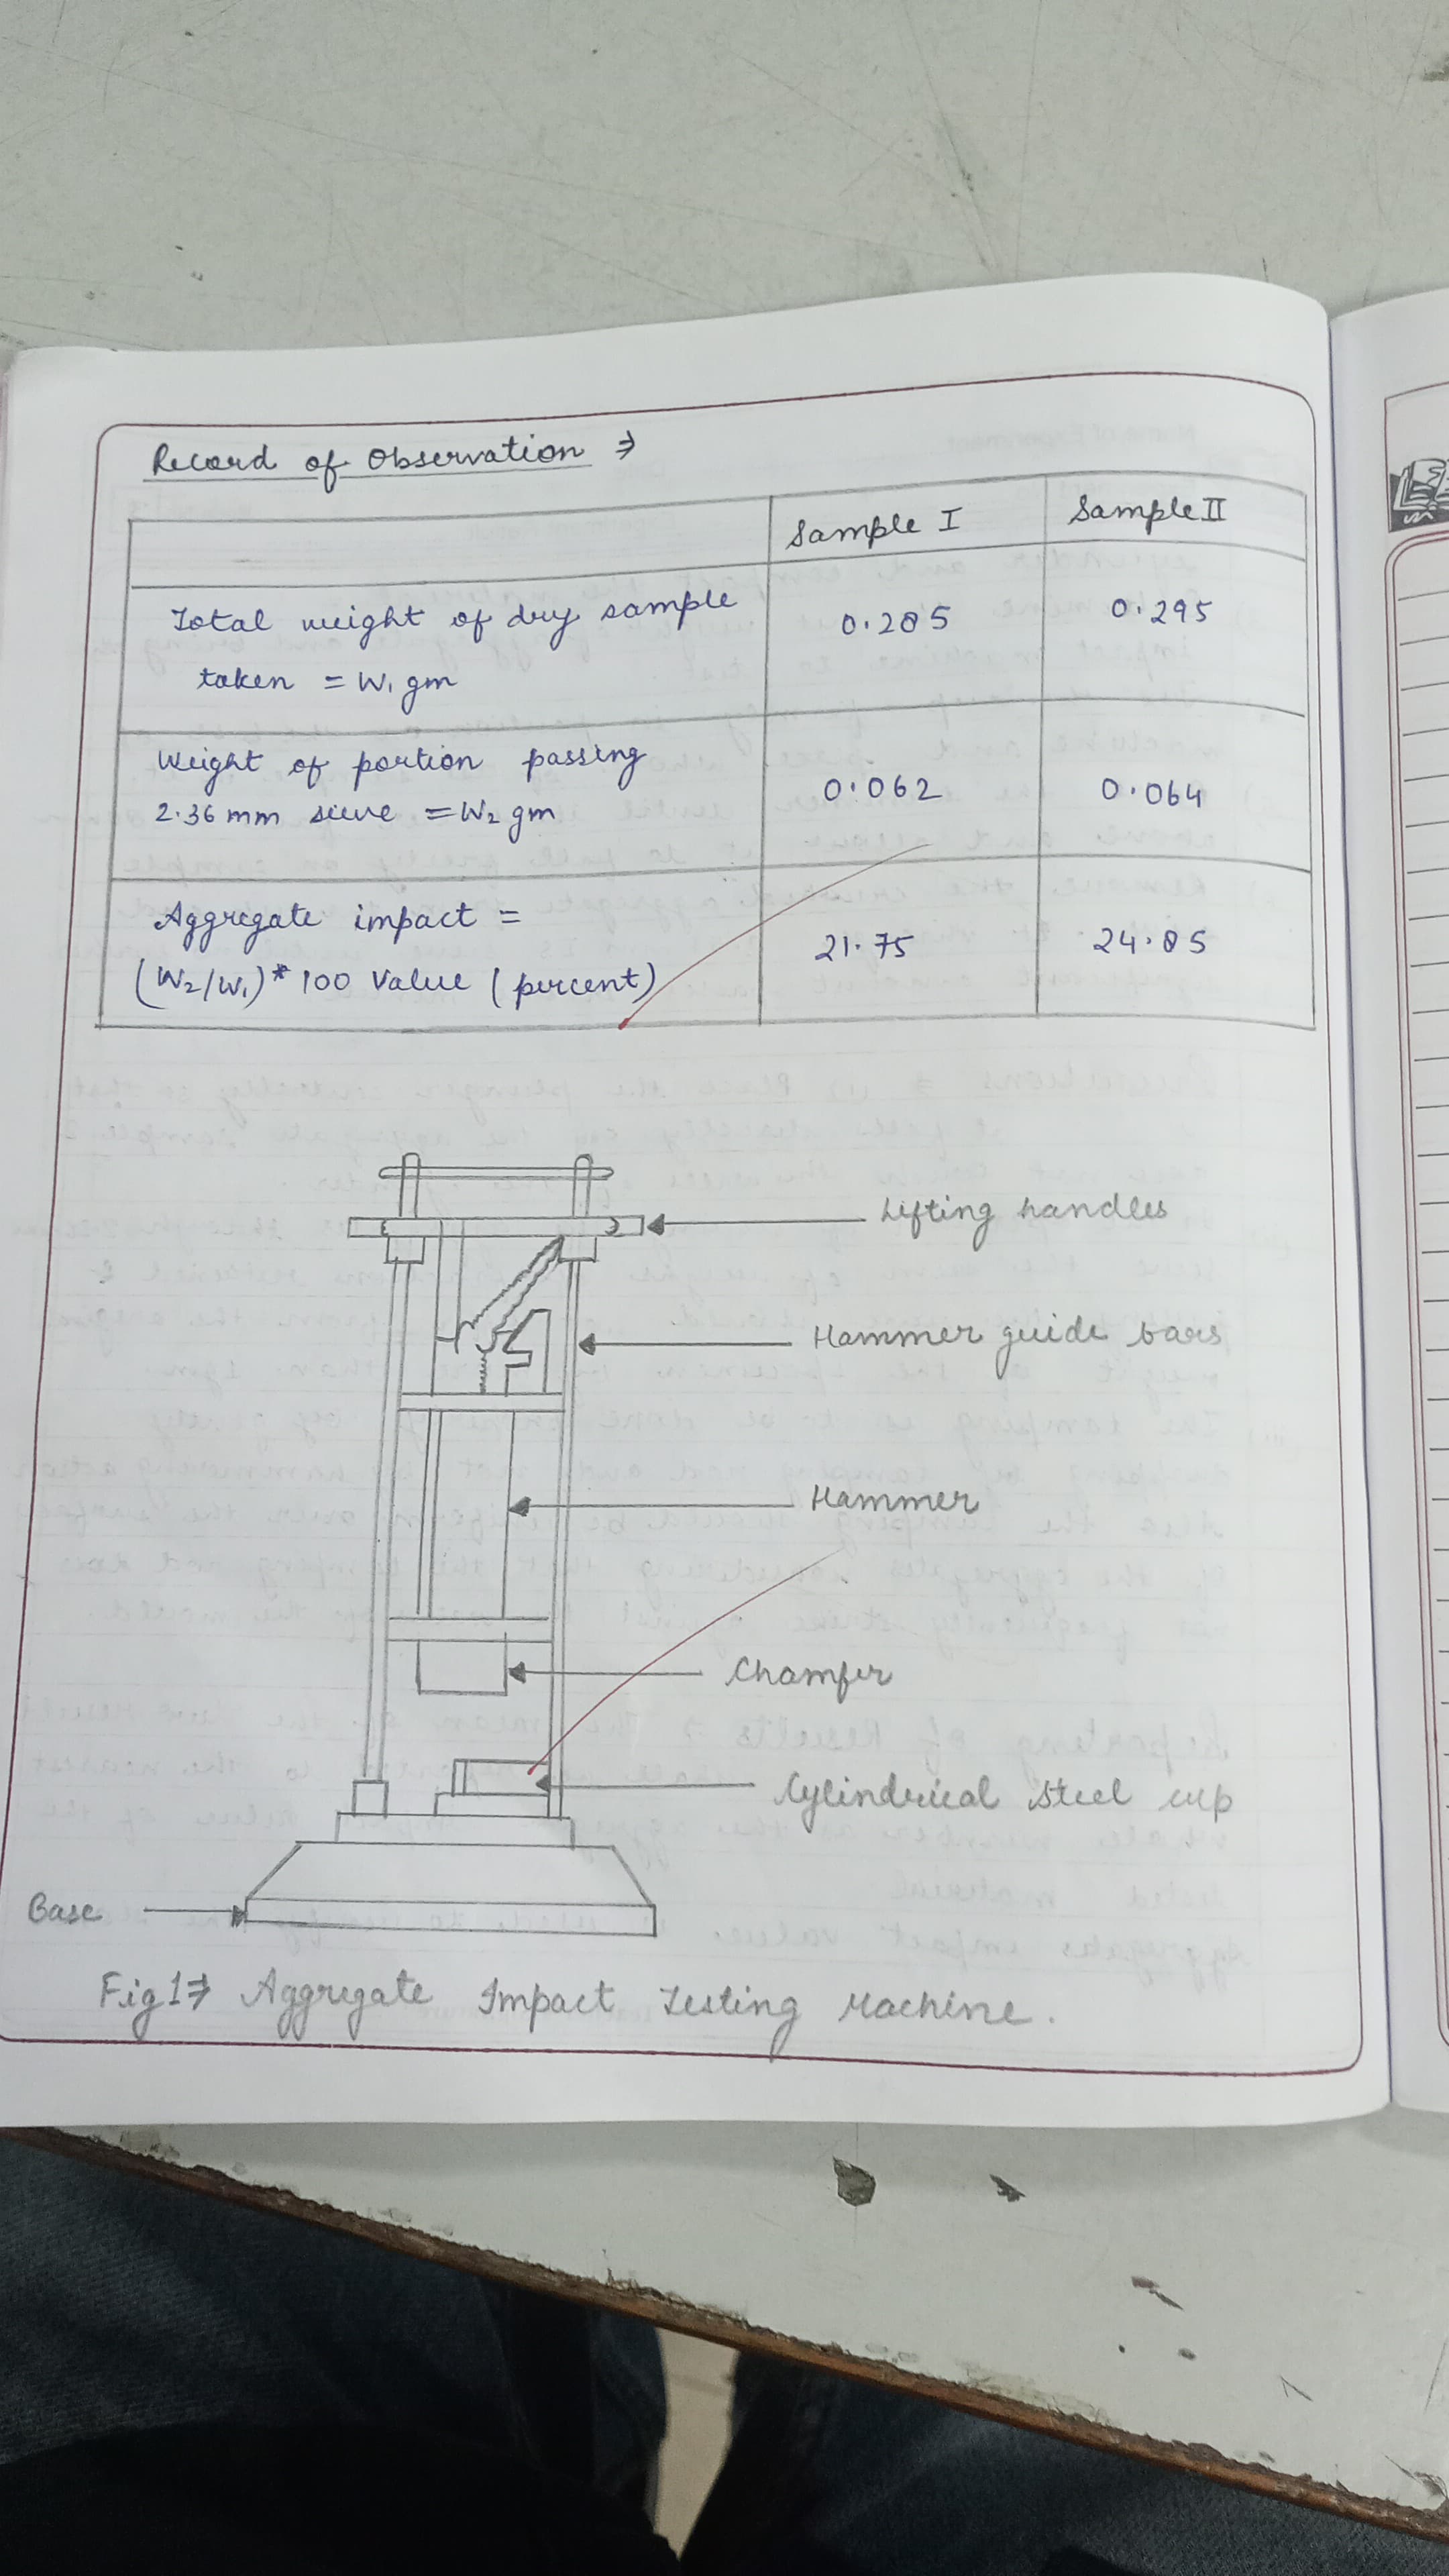 Record of Observation ⇒
Sample I
Sample II
Total weight of dry sample
taken = W₁ gm
0.285
0.295
Weight of portion passing
2.36 mm sieve = W₂ gm
0.062
0.064
Aggregate impact =
(W₂/W₁)* 100 Value (percent)
21.75
24.85
Lifting handles
Hammer guide bars
Hammer
Chamfer
Cylindrical steel cup
Base
Fig 1⇒ Aggregate Impact Testing Machine.